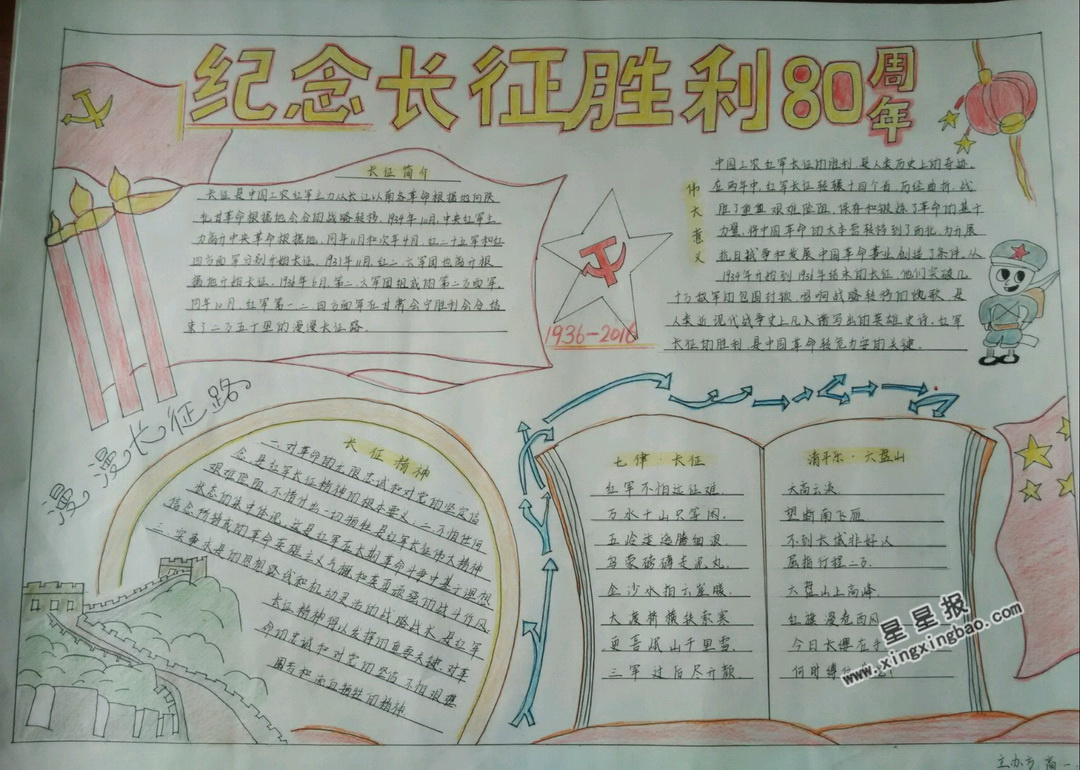 纪念长征胜利80周年
长征简介
长征是中国工农红军主力从长江以南各革命根据地向陕
北甘革命根据地会合的战略转移。1934年10月,中央红军主
力离开中央革命根据地。同年11月和次年4月,红二十五军和红
四方面军分别开始长征。1935年11月,红二、六军团也离开根
据地开始长征。1936年6月,第二、六军团组成的第二方面军。
同年10月,红军第一、二、四方面军在甘肃会宁胜利会合结
束了二万五千里的漫漫长征路。
1936-2016
伟大意义
中国工农红军长征的胜利,是人类历史上的奇迹。
在两年中,红军长征转辗十四个省,历经曲折,战
胜了重重艰难险阻,保存和锻炼了革命的基干
力量,将中国革命的大本营转移到了西北,为开展
抗日战争和发展中国革命事业创造了条件。从
1934年开始到1936年结束的长征,他们突破几
十万敌军的包围封锁,
人类近现代战争史上
长征的胜利,是中国革命转危为安的关键。
漫漫长征路
长征精神
一、对革命的无限忠诚和对党的坚定信
念,是红军长征精神的根本要义。二、不怕任何
艰难险阻,不惜付出一切牺牲是红军长征伟大精神
三、实事求是的思想路线和机动灵活的战略战术,是红军
长征精神得以发挥的重要关键。对革
命的忠诚和对党的坚信,不怕艰难
七律·长征
红军不怕远征难,
万水千山只等闲。
五岭逶迤腾细浪,
乌蒙磅礴走泥丸。
金沙水拍云崖暖,
大渡桥横铁索寒
更喜岷山千里雪,
三军过后尽开颜
清平乐·六盘山
天高云淡
望断南飞雁
不到长城非好汉
屈指行程二万
六盘山上高峰
红旗漫卷西风
今日长缨在手
何时缚
星星报
www.xingxingbao.com
主办方:高一